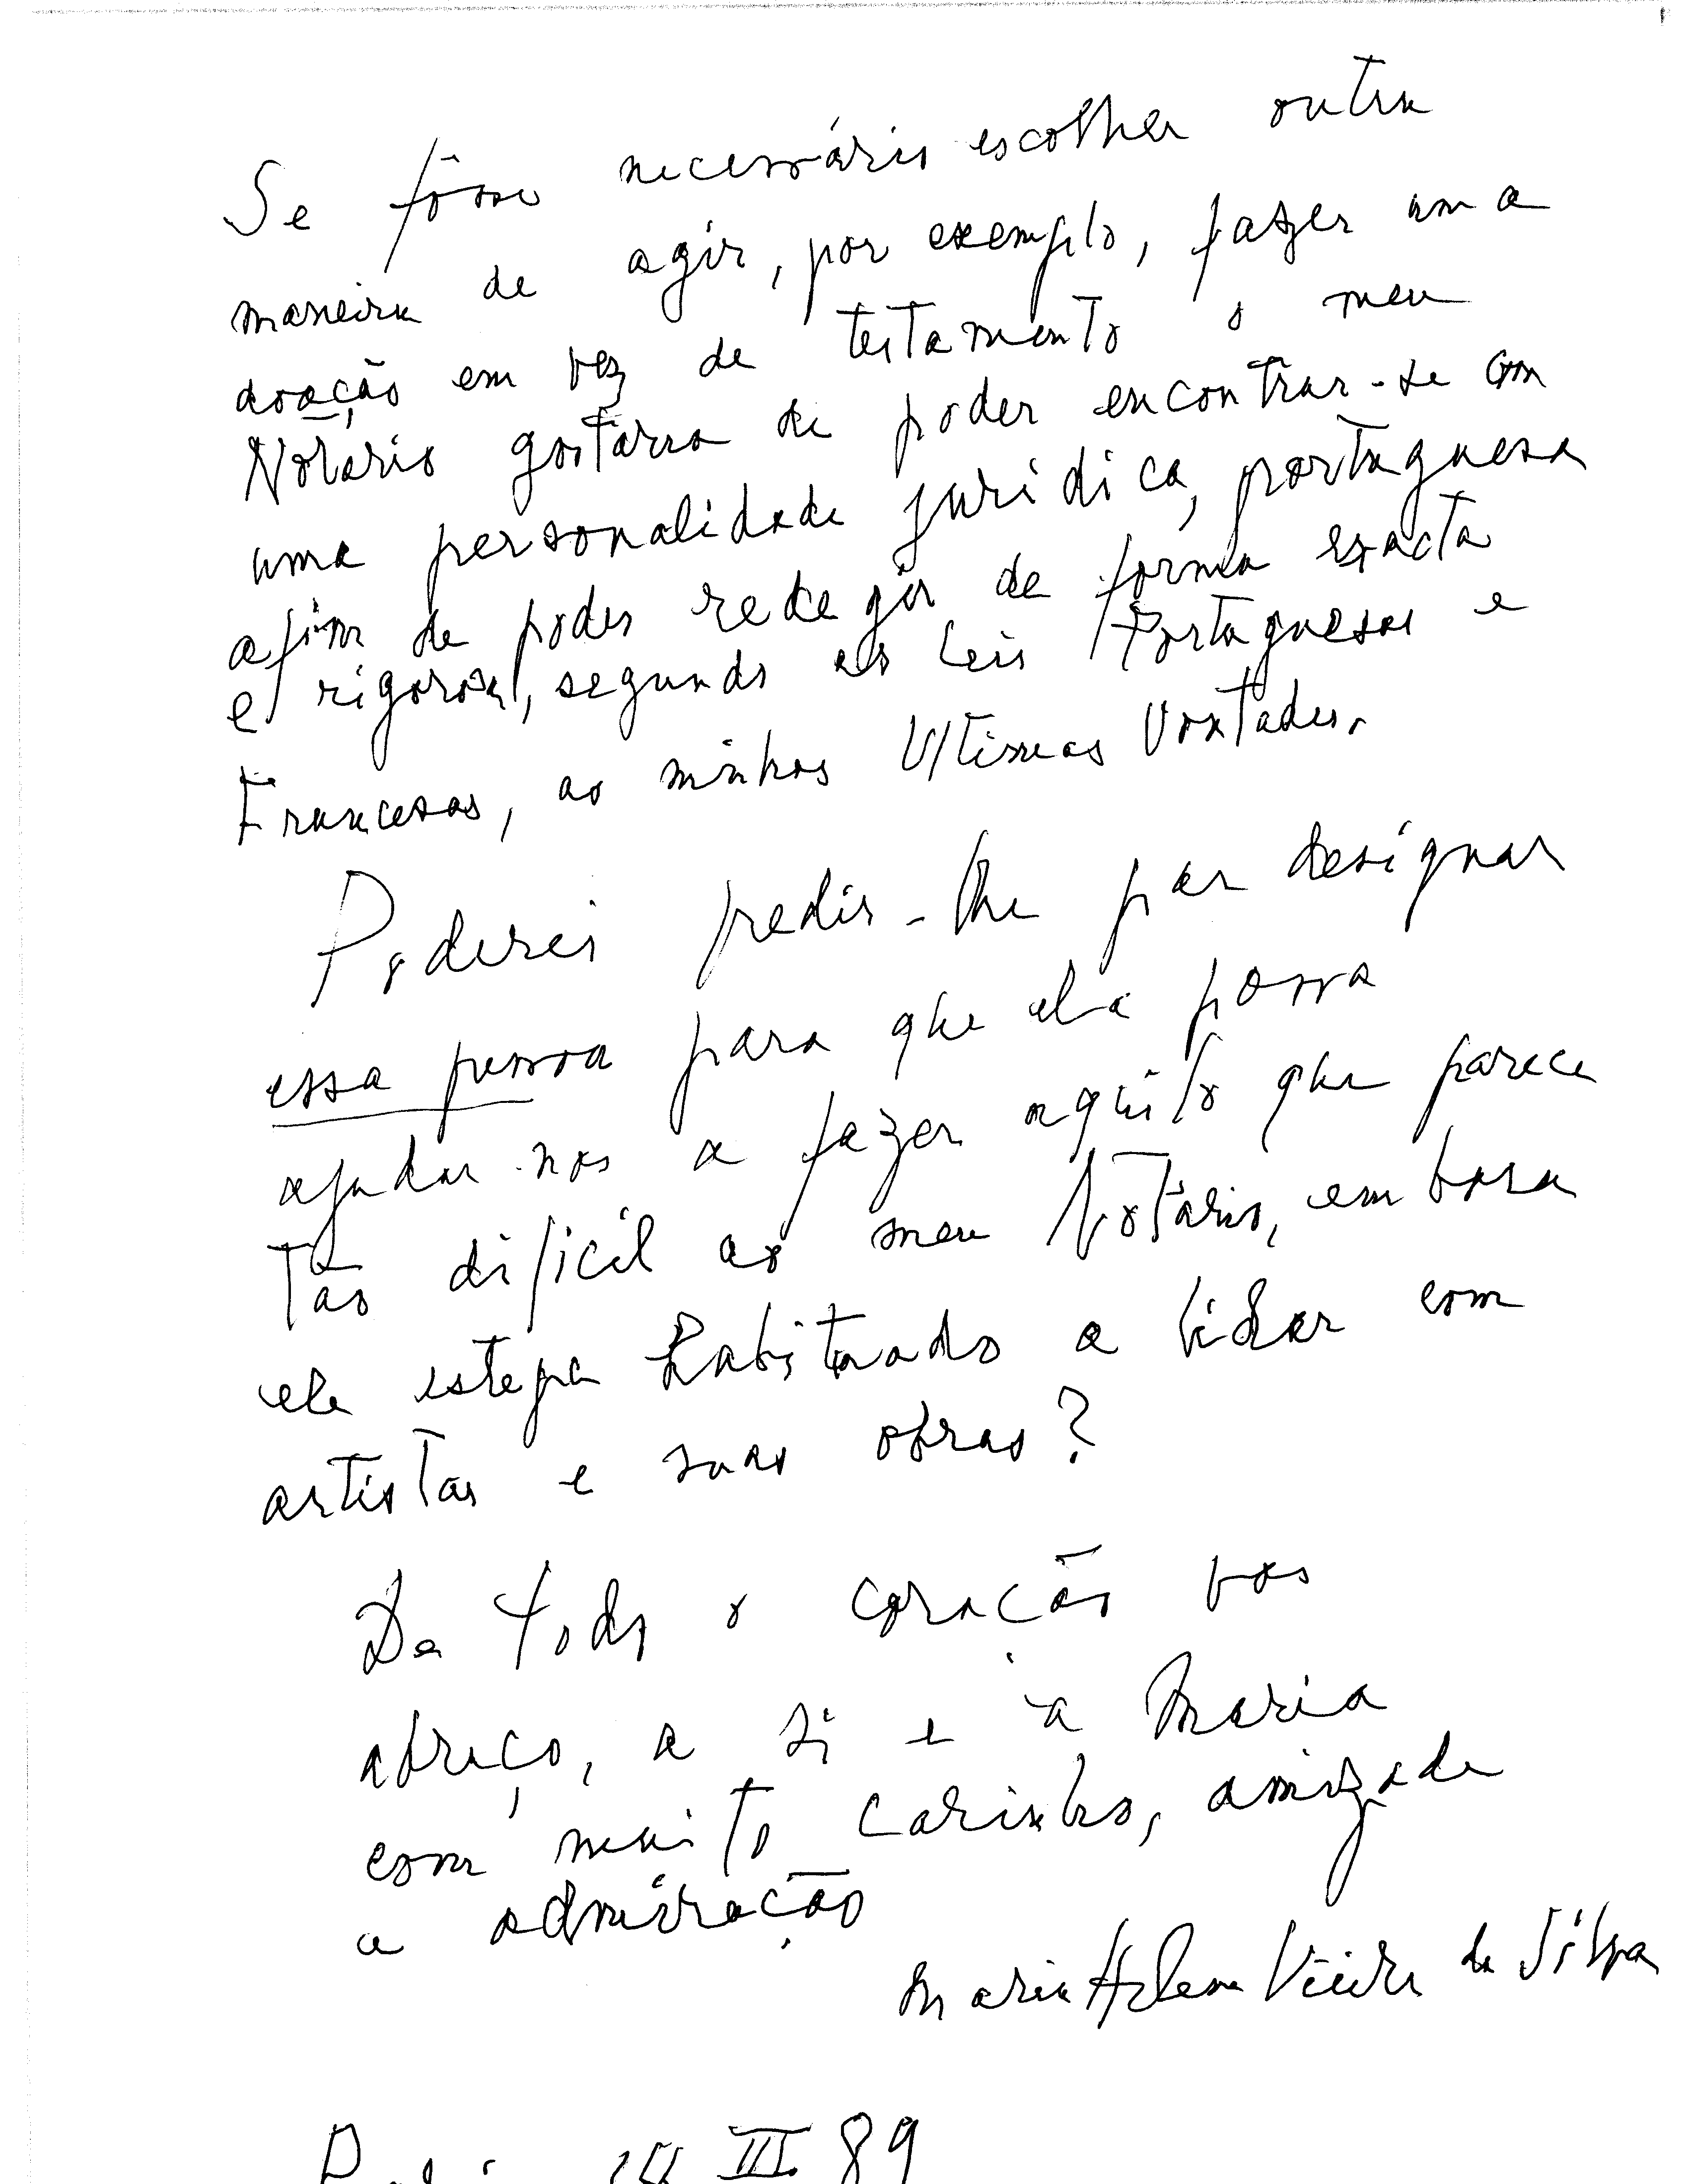 Se fôsse necessário escolher outra
maneira de agir, por exemplo, fazer uma
doação em vez de testamento o meu
Notário gostaria de poder encontrar-se com
uma personalidade juridica, portuguesa
afim de poder redegir de forma exacta
e rigorosa, segundo as Leis Portuguesas e
Francesas, as minhas Ultimas Vontades.
Poderei pedir-lhe par designar
essa pessoa para que ela possa
ajudar-nos a fazer aquilo que parece
Tão dificil ao meu Notário, embora
ele esteja habituado a lidar com
artistas e suas obras?
De todo o coração vos
abraço, a si e à Maria
com muito carinho, amizade
e admiração
Maria Helena Vieira da Silva
III. 89